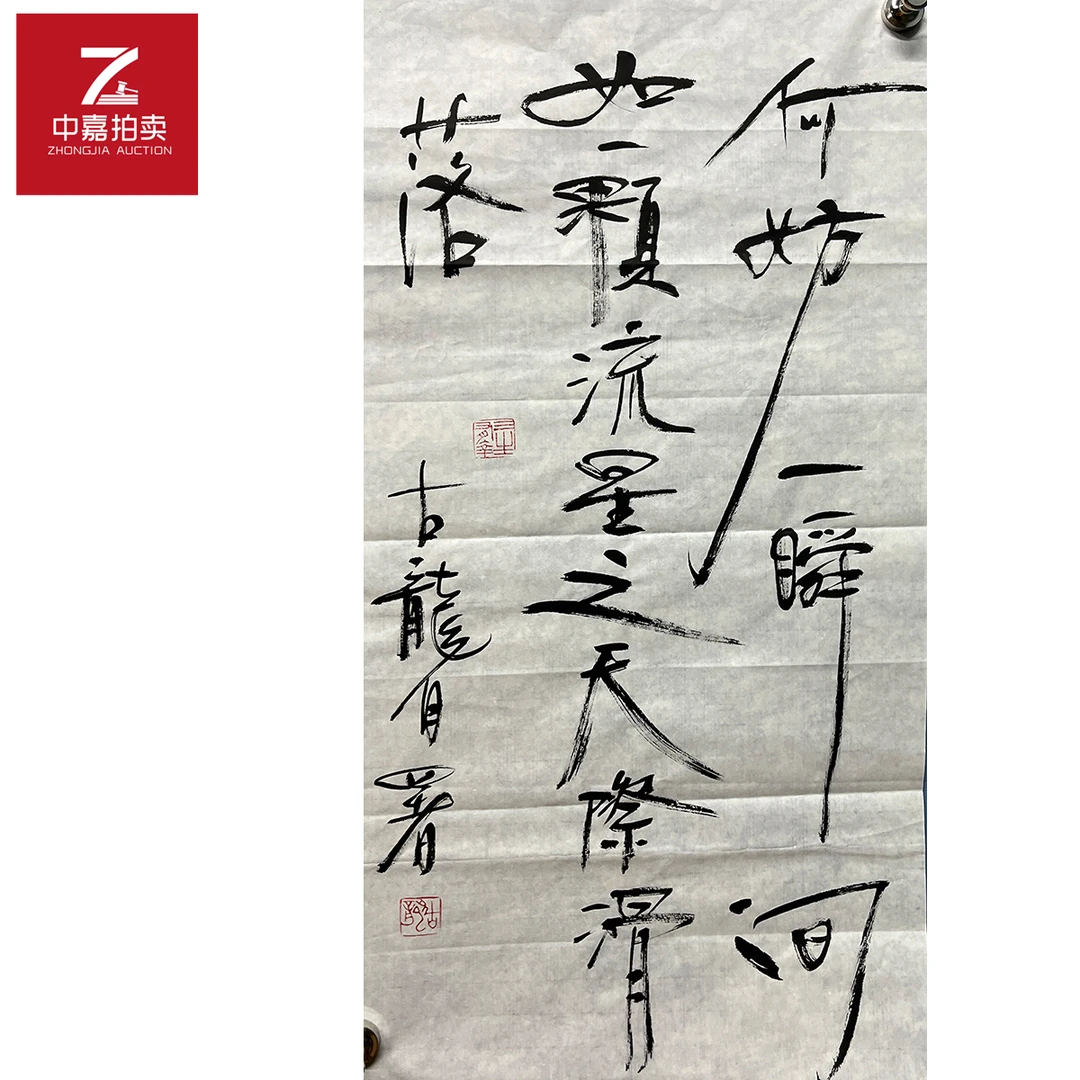 中嘉拍卖
ZHONGJIA AUCTION
何妨一瞬间
如一颗流星之天際滑
落
古龍自署